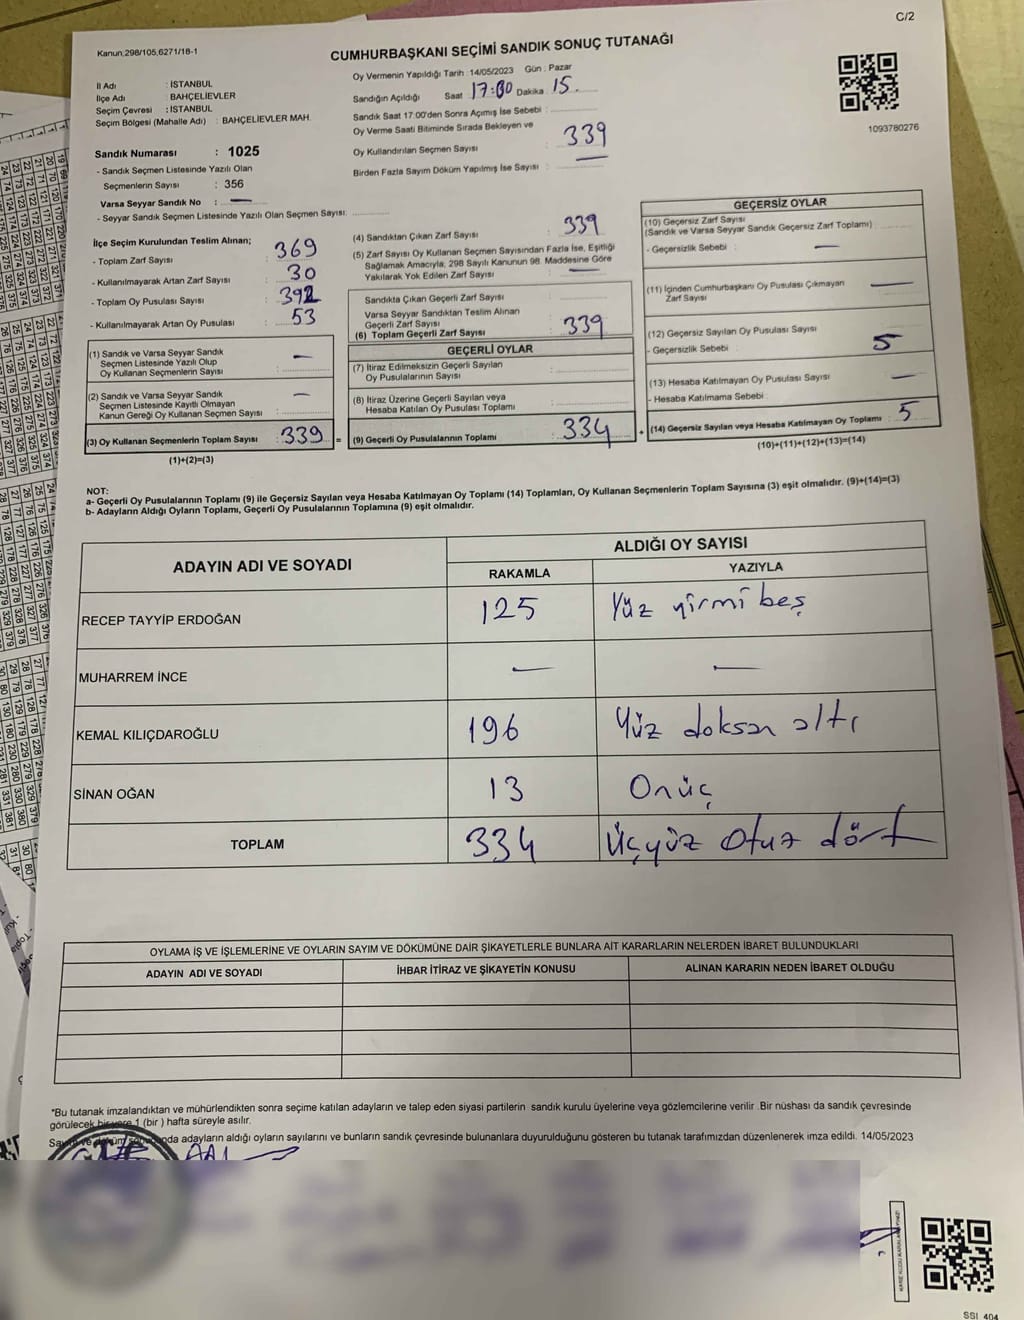 C/2
Kanun:298/105,6271/18-1
CUMHURBAŞKANI SEÇİMİ SANDIK SONUÇ TUTANAĞI
İl Adı : İSTANBUL
İlçe Adı : BAHÇELİEVLER
Seçim Çevresi : İSTANBUL
Seçim Bölgesi (Mahalle Adı) : BAHÇELİEVLER MAH.
Sandık Numarası : 1025
- Sandık Seçmen Listesinde Yazılı Olan
Seçmenlerin Sayısı : 356
Varsa Seyyar Sandık No : —
- Seyyar Sandık Seçmen Listesinde Yazılı Olan Seçmen Sayısı:
Oy Vermenin Yapıldığı Tarih :14/05/2023 Gün : Pazar
Sandığın Açıldığı Saat 17:00 Dakika 15
Sandık Saat 17:00'den Sonra Açımış İse Sebebi :
Oy Verme Saati Bitiminde Sırada Bekleyen ve
Oy Kullandırılan Seçmen Sayısı : 339
Birden Fazla Sayım Döküm Yapılmış İse Sayısı : —
1093780276
İlçe Seçim Kurulundan Teslim Alınan;
- Toplam Zarf Sayısı : 369
- Kullanılmayarak Artan Zarf Sayısı : 30
- Toplam Oy Pusulası Sayısı : 392
- Kullanılmayarak Artan Oy Pusulası : 53
(1) Sandık ve Varsa Seyyar Sandık
Seçmen Listesinde Yazılı Olup
Oy Kullanan Seçmenlerin Sayısı : —
(2) Sandık ve Varsa Seyyar Sandık
Seçmen Listesinde Kayıtlı Olmayan
Kanun Gereği Oy Kullanan Seçmen Sayısı : —
(3) Oy Kullanan Seçmenlerin Toplam Sayısı : 339 =
(1)+(2)=(3)
(4) Sandıktan Çıkan Zarf Sayısı : 339
(5) Zarf Sayısı Oy Kullanan Seçmen Sayısından Fazla İse, Eşitliği
Sağlamak Amacıyla, 298 Sayılı Kanunun 98. Maddesine Göre
Yakılarak Yok Edilen Zarf Sayısı : —
Sandıkta Çıkan Geçerli Zarf Sayısı :
Varsa Seyyar Sandıktan Teslim Alınan
Geçerli Zarf Sayısı :
(6) Toplam Geçerli Zarf Sayısı : 339
GEÇERLİ OYLAR
(7) İtiraz Edilmeksizin Geçerli Sayılan
Oy Pusulalarının Sayısı :
(8) İtiraz Üzerine Geçerli Sayılan veya
Hesaba Katılan Oy Pusulası Toplamı :
(9) Geçerli Oy Pusulalarının Toplamı : 334 +
GEÇERSİZ OYLAR
(10) Geçersiz Zarf Sayısı
(Sandık ve Varsa Seyyar Sandık Geçersiz Zarf Toplamı)
- Geçersizlik Sebebi : —
(11) İçinden Cumhurbaşkanı Oy Pusulası Çıkmayan
Zarf Sayısı : —
(12) Geçersiz Sayılan Oy Pusulası Sayısı
- Geçersizlik Sebebi : 5
(13) Hesaba Katılmayan Oy Pusulası Sayısı : —
- Hesaba Katılmama Sebebi :
(14) Geçersiz Sayılan veya Hesaba Katılmayan Oy Toplamı : 5
(10)+(11)+(12)+(13)=(14)
NOT:
a- Geçerli Oy Pusulalarının Toplamı (9) ile Geçersiz Sayılan veya Hesaba Katılmayan Oy Toplamı (14) Toplamları, Oy Kullanan Seçmenlerin Toplam Sayısına (3) eşit olmalıdır. (9)+(14)=(3)
b- Adayların Aldığı Oyların Toplamı, Geçerli Oy Pusulalarının Toplamına (9) eşit olmalıdır.
ADAYIN ADI VE SOYADI
ALDIĞI OY SAYISI
RAKAMLA YAZIYLA
RECEP TAYYİP ERDOĞAN 125 Yüz yirmi beş
MUHARREM İNCE — —
KEMAL KILIÇDAROĞLU 196 Yüz doksan altı
SİNAN OĞAN 13 Onüç
TOPLAM 334 Üçyüz otuz dört
OYLAMA İŞ VE İŞLEMLERİNE VE OYLARIN SAYIM VE DÖKÜMÜNE DAİR ŞİKAYETLERLE BUNLARA AİT KARARLARIN NELERDEN İBARET BULUNDUKLARI
ADAYIN ADI VE SOYADI İHBAR İTİRAZ VE ŞİKAYETİN KONUSU ALINAN KARARIN NEDEN İBARET OLDUĞU
*Bu tutanak imzalandıktan ve mühürlendikten sonra seçime katılan adayların ve talep eden siyasi partilerin sandık kurulu üyelerine veya gözlemcilerine verilir .Bir nüshası da sandık çevresinde
görülecek bir yere 1 (bir ) hafta süreyle asılır.
adayların aldığı oyların sayılarını ve bunların sandık çevresinde bulunanlara duyurulduğunu gösteren bu tutanak tarafımızdan düzenlenerek imza edildi. 14/05/2023
SSI 404